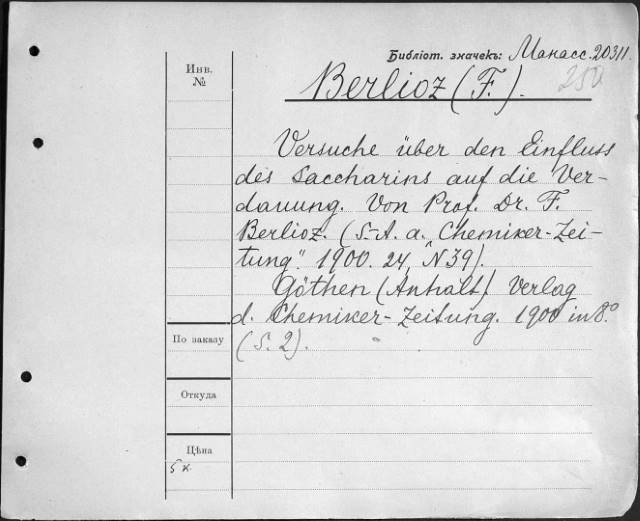 Библіот. значекъ: Манасс. 20311.
250
Инв.
№
Berlioz (F.).
Versuche über den Einfluss
des Saccharins auf die Ver-
dauung. Von Prof. Dr. F.
Berlioz. (S.-A. a. „Chemiker-Zei-
tung" 1900. 24, N 39).
Göthen (Anhalt) Verlag
d. Chemiker-Zeitung. 1900 in 8.°
(S. 2).
По заказу
Откуда
Цѣна
5 к